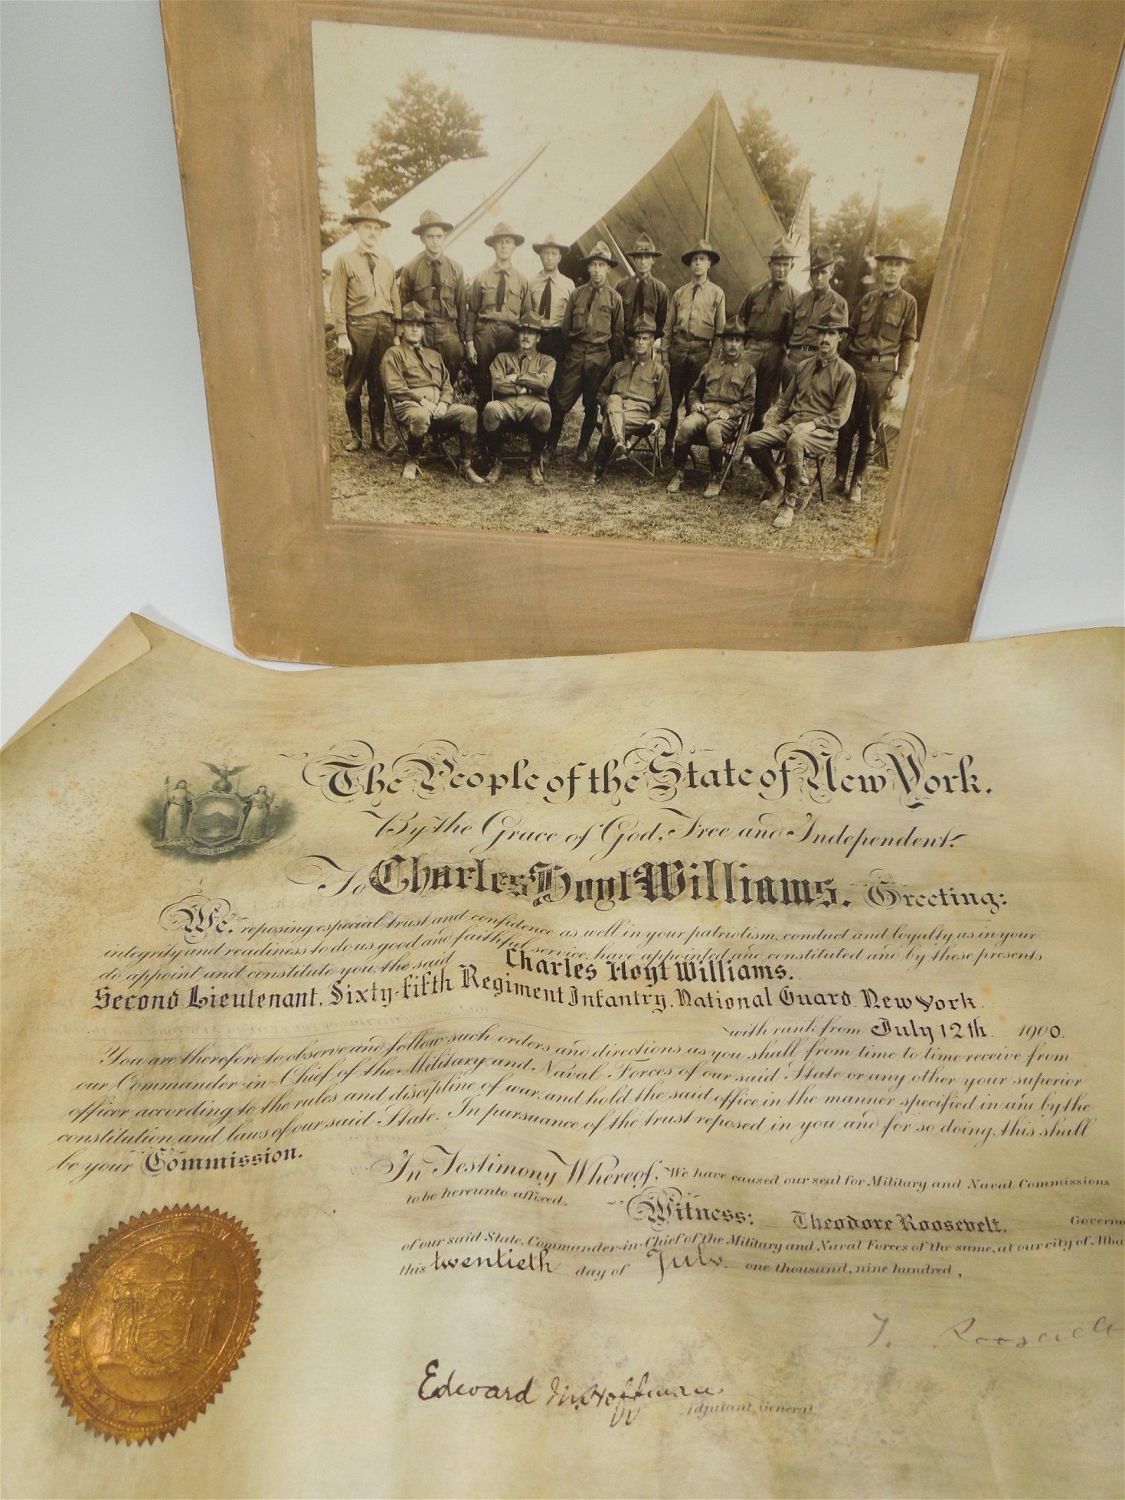 The People of the State of New York.
By the Grace of God, Free and Independent:
To Charles Hoyt Williams. Greeting:
We, reposing especial trust and confidence as well in your patriotism, conduct and loyalty as in your
integrity and readiness to do us good and faithful service, have appointed and constituted and by these presents
do appoint and constitute you, the said Charles Hoyt Williams.
Second Lieutenant, Sixty-fifth Regiment Infantry, National Guard, New York.
with rank from July 12th 1900.
You are therefore to observe and follow such orders and directions as you shall from time to time receive from
our Commander-in-Chief of the Military and Naval Forces of our said State or any other your superior
officer according to the rules and discipline of war, and hold the said office in the manner specified in and by the
constitution and laws of our said State. In pursuance of the trust reposed in you and for so doing, this shall
be your Commission.
In Testimony Whereof, We have caused our seal for Military and Naval Commissions
to be hereunto affixed.
Witness: Theodore Roosevelt. Governo
of our said State, Commander-in-Chief of the Military and Naval Forces of the same, at our city of Alba
this twentieth day of July one thousand, nine hundred,
T. Roosevelt
Edward M. Hoffman
Adjutant General